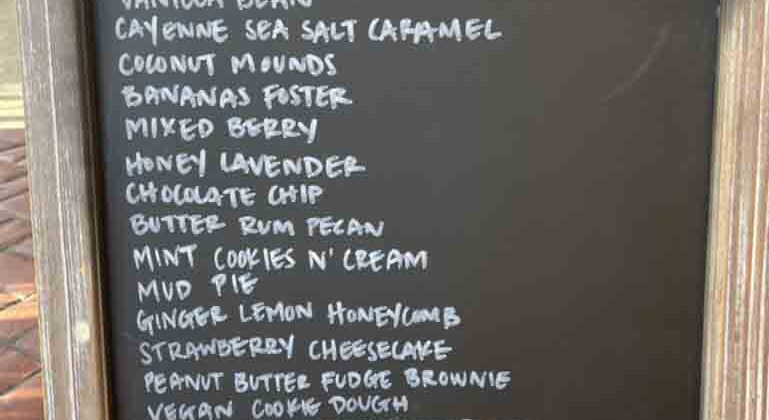 VANILLA BEAN
CAYENNE SEA SALT CARAMEL
COCONUT MOUNDS
BANANAS FOSTER
MIXED BERRY
HONEY LAVENDER
CHOCOLATE CHIP
BUTTER RUM PECAN
MINT COOKIES N' CREAM
MUD PIE
GINGER LEMON HONEYCOMB
STRAWBERRY CHEESECAKE
PEANUT BUTTER FUDGE BROWNIE
VEGAN COOKIE DOUGH